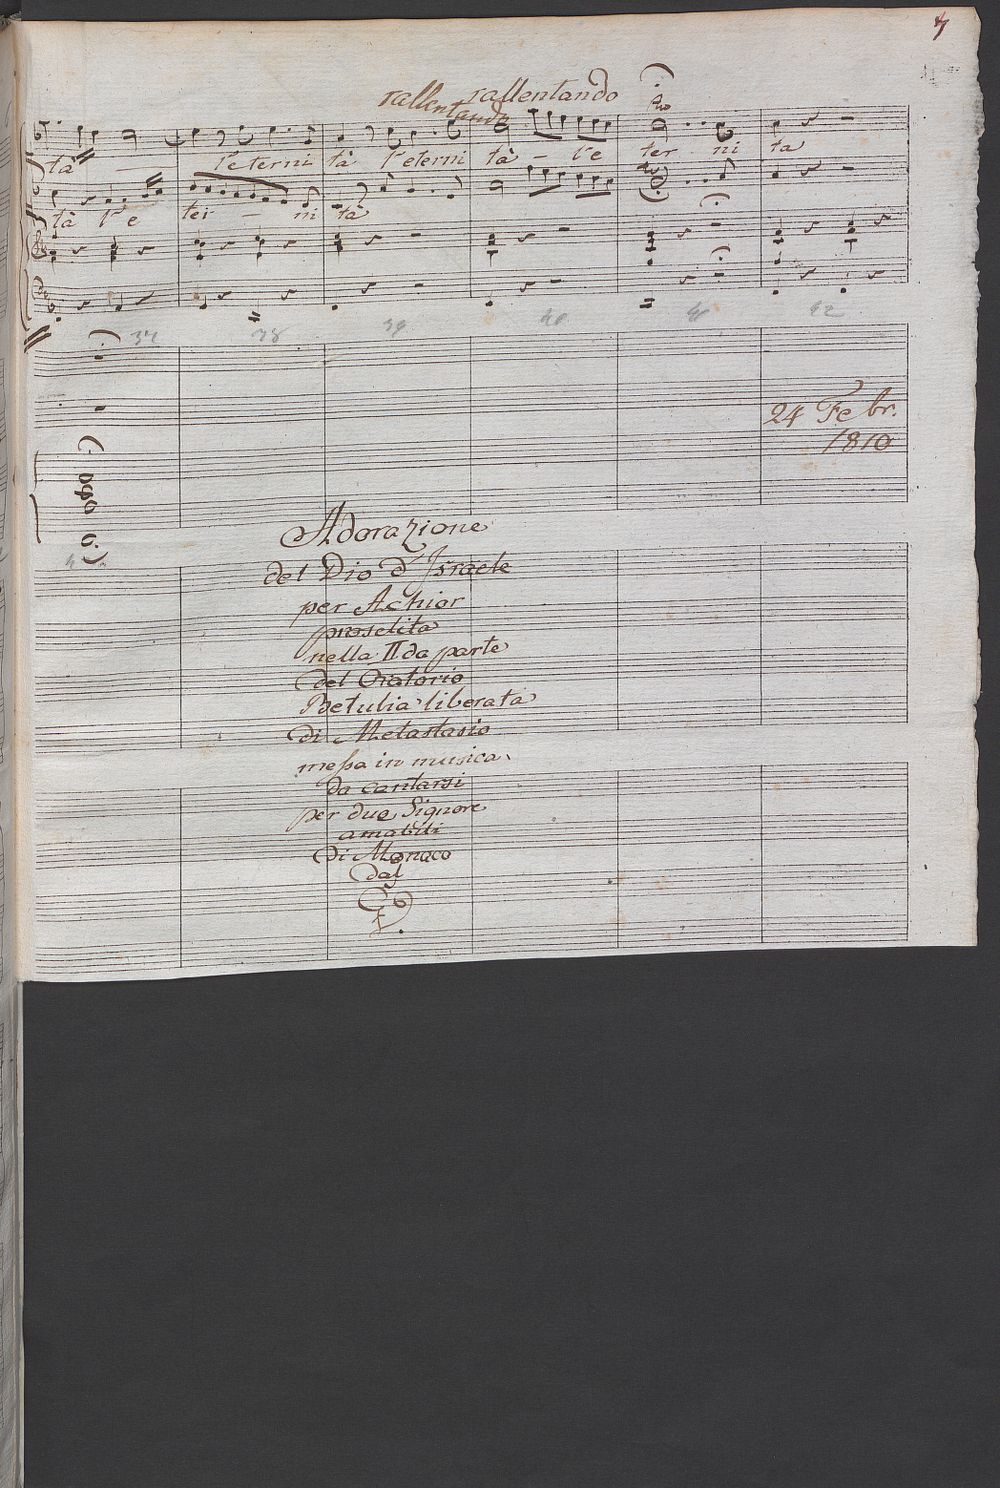 rallentando
rallentando
tà l'eterni tà l'eterni tà - l'e ter - ni ta
tà l'e ter - ni tà
37 38 39 40 41 42
24 Febr.
1810
Adorazione
del Dio d'Israele
per Achior
proselita
nella II da parte
del Oratorio
Betulia liberata
di Metastasio
messa in musica
da cantarsi
per due Signore
amabili
di Monaco
dal